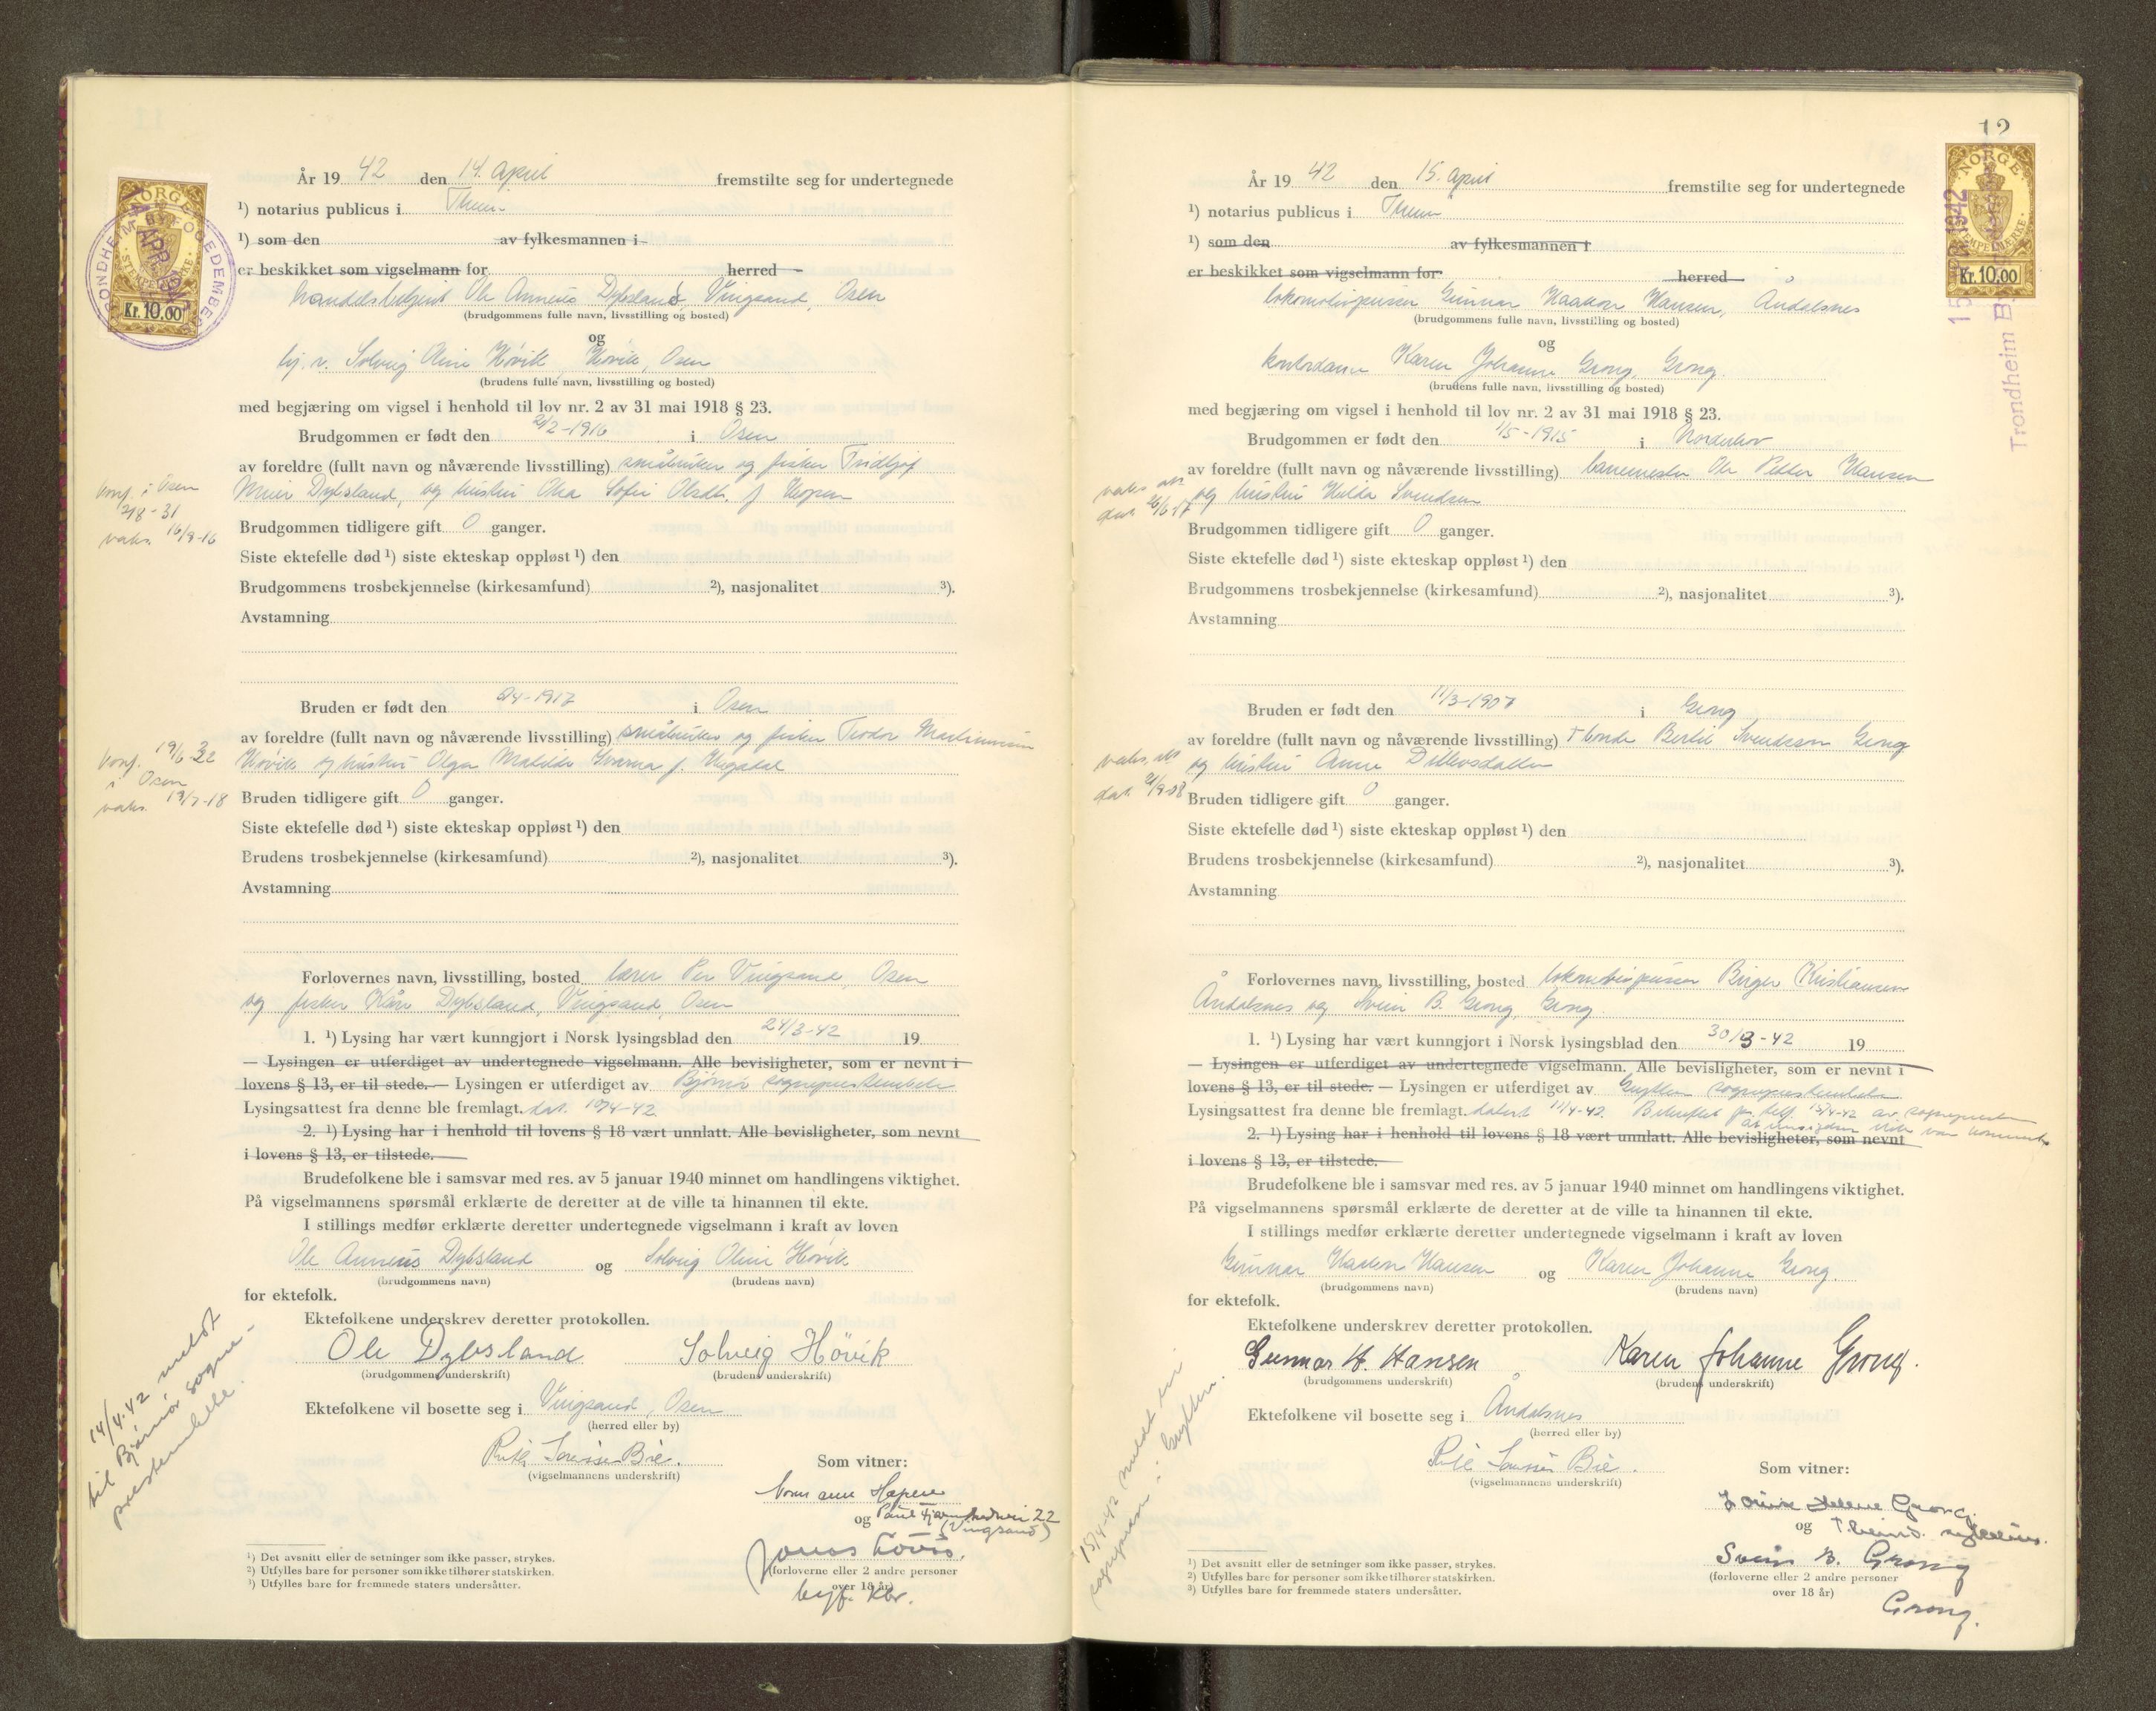 År 19 42 den 14. April fremstilte seg for undertegnede
¹) notarius publicus i Theim
¹) som den av fylkesmannen i
er beskikket som vigselmann for herred
handelsbetjent Ole Anneus Dybsland, Vingsand, Osen
(brudgommens fulle navn, livsstilling og bosted)
og
hj. v. Solveig Oline Hövik, Hövik, Osen
(brudens fulle navn, livsstilling og bosted)
med begjæring om vigsel i henhold til lov nr. 2 av 31 mai 1918 § 23.
Brudgommen er født den 2/2-1916 i Osen
av foreldre (fullt navn og nåværende livsstilling) småbruker og fisker Fridtjof
Meier Dybsland, og hustru Olea Sofie Olsdtr. f. Hopen
konf. i Osen
2/8-31
vaks. 16/9-16
Brudgommen tidligere gift 0 ganger.
Siste ektefelle død ¹) siste ekteskap oppløst ¹) den
Brudgommens trosbekjennelse (kirkesamfund) ²), nasjonalitet ³).
Avstamning
Bruden er født den 2/4-1917 i Osen
av foreldre (fullt navn og nåværende livsstilling) småbruker og fisker Teodor
Hövik og hustru Olga Matilde f. Hegdal
konf. 19/6 32
i Osen
vaks. 13/7-18
Bruden tidligere gift 0 ganger.
Siste ektefelle død ¹) siste ekteskap oppløst ¹) den
Brudens trosbekjennelse (kirkesamfund) ²), nasjonalitet ³).
Avstamning
Forlovernes navn, livsstilling, bosted lærer Per Vingsand, Osen
og fisker Kåre Dybsland, Vingsand, Osen
1. ¹) Lysing har vært kunngjort i Norsk lysingsblad den 24/3-42 19
— Lysingen er utferdiget av undertegnede vigselmann. Alle bevisligheter, som er nevnt i
lovens § 13, er til stede. — Lysingen er utferdiget av Bjørnør sogneprestembede
Lysingsattest fra denne ble fremlagt. dat. 10/4-42
2. ¹) Lysing har i henhold til lovens § 18 vært unnlatt. Alle bevisligheter, som nevnt
i lovens § 13, er tilstede.
Brudefolkene ble i samsvar med res. av 5 januar 1940 minnet om handlingens viktighet.
På vigselmannens spørsmål erklærte de deretter at de ville ta hinannen til ekte.
I stillings medfør erklærte deretter undertegnede vigselmann i kraft av loven
Ole Anneus Dybsland og Solveig Oline Hövik
(brudgommens navn) (brudens navn)
for ektefolk.
Ektefolkene underskrev deretter protokollen.
Ole Dybsland Solveig Hövik
(brudgommens underskrift) (brudens underskrift)
Ektefolkene vil bosette seg i Vingsand, Osen
(herred eller by)
14/4.42 meldt
til Bjørnør sogne-
prestembede.
Bie.
(vigselmannens underskrift)
Som vitner:
og
(Vingsand)
Jonas
(forloverne eller 2 andre personer
over 18 år)
byf. ktr.
¹) Det avsnitt eller de setninger som ikke passer, strykes.
²) Utfylles bare for personer som ikke tilhører statskirken.
³) Utfylles bare for fremmede staters undersåtter.
NORGE
STEMPELMERKE
Kr. 10.00
TRONDHEIM BYFOGEDEMBEDE
12
År 19 42 den 15. April fremstilte seg for undertegnede
¹) notarius publicus i Theim
¹) som den av fylkesmannen i
er beskikket som vigselmann for herred
lokomotivpusser Gunnar Haakon Hansen, Åndalsnes
(brudgommens fulle navn, livsstilling og bosted)
og
kontordame Karen Johanne Grong, Grong.
(brudens fulle navn, livsstilling og bosted)
med begjæring om vigsel i henhold til lov nr. 2 av 31 mai 1918 § 23.
Brudgommen er født den 1/5-1915 i Norderhov
av foreldre (fullt navn og nåværende livsstilling) banemester Ole Petter Hansen
og hustru Hilda Svendsen
vaks. att.
dat. 26/6 17
Brudgommen tidligere gift 0 ganger.
Siste ektefelle død ¹) siste ekteskap oppløst ¹) den
Brudgommens trosbekjennelse (kirkesamfund) ²), nasjonalitet ³).
Avstamning
Bruden er født den 11/3-1907 i Grong
av foreldre (fullt navn og nåværende livsstilling) + bonde Bertil Svendsen Grong
og hustru Anna
vaks. att.
dat. 21/9-08
Bruden tidligere gift 0 ganger.
Siste ektefelle død ¹) siste ekteskap oppløst ¹) den
Brudens trosbekjennelse (kirkesamfund) ²), nasjonalitet ³).
Avstamning
Forlovernes navn, livsstilling, bosted lokomotivpusser Birger Kristiansen
Åndalsnes og Svein B. Grong, Grong.
1. ¹) Lysing har vært kunngjort i Norsk lysingsblad den 30/3-42 19
— Lysingen er utferdiget av undertegnede vigselmann. Alle bevisligheter, som er nevnt i
lovens § 13, er til stede. — Lysingen er utferdiget av Grytten sogneprestembede
Lysingsattest fra denne ble fremlagt. datert 11/4-42. Bekreftet pr. telf. 15/4-42 av sognepresten
at innsigelser ikke var kommet
2. ¹) Lysing har i henhold til lovens § 18 vært unnlatt. Alle bevisligheter, som nevnt
i lovens § 13, er tilstede.
Brudefolkene ble i samsvar med res. av 5 januar 1940 minnet om handlingens viktighet.
På vigselmannens spørsmål erklærte de deretter at de ville ta hinannen til ekte.
I stillings medfør erklærte deretter undertegnede vigselmann i kraft av loven
Gunnar Haakon Hansen og Karen Johanne Grong.
(brudgommens navn) (brudens navn)
for ektefolk.
Ektefolkene underskrev deretter protokollen.
Gunnar H. Hansen Karen Johanne Grong.
(brudgommens underskrift) (brudens underskrift)
Ektefolkene vil bosette seg i Åndalsnes
(herred eller by)
15/4-42 meldt til
sognepresten i Grytten.
Bie.
(vigselmannens underskrift)
Som vitner:
Louise Helene Grong.
og Theim.
Svein B. Grong
(forloverne eller 2 andre personer
over 18 år)
Grong.
¹) Det avsnitt eller de setninger som ikke passer, strykes.
²) Utfylles bare for personer som ikke tilhører statskirken.
³) Utfylles bare for fremmede staters undersåtter.
NORGE
STEMPELMERKE
Kr. 10.00
15 APR 1942
Trondheim